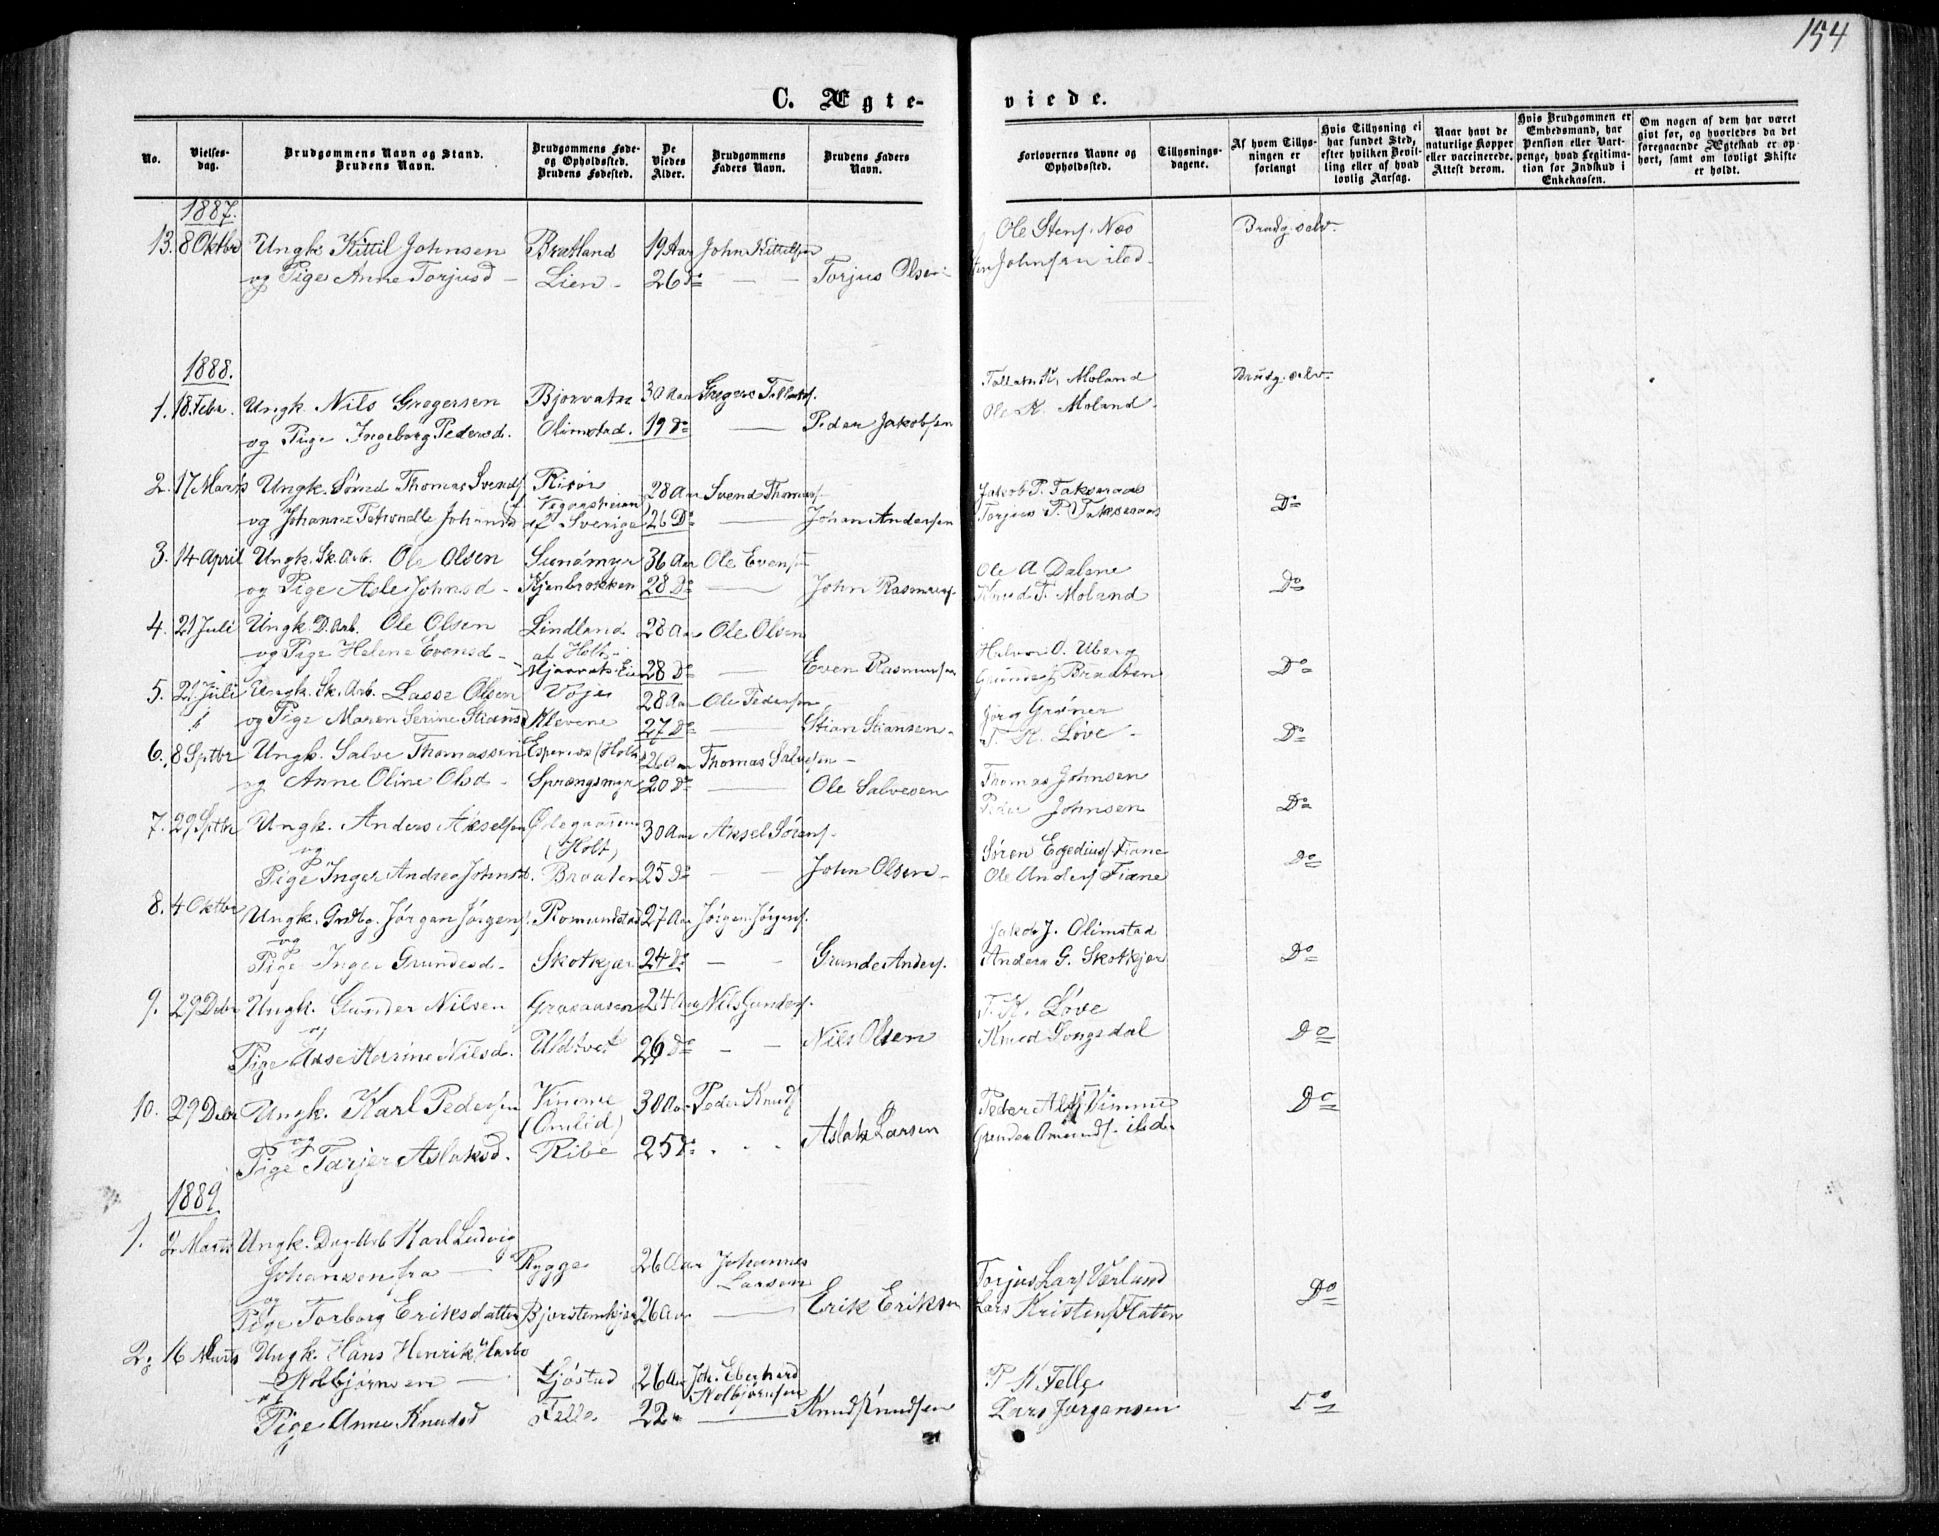 154
C. Ægteviede.
No.
Vielsesdag.
Brudgommens Navn og Stand. Brudens Navn.
Brudgommens Føde- og Opholdssted. Brudens Fødested.
De Viedes Alder.
Brudgommens Faders Navn.
Brudens Faders Navn.
Forlovernes Navne og Opholdssted.
Tillysningsdagene.
Af hvem Tillysningen er forlangt
Hvis Tillysning ei har fundet Sted, efter hvilken Bevilling eller af hvad lovlig Aarsag.
Naar havt de naturlige Kopper eller vaccinerede. Attest derom.
Hvis Brudgommen er Embedsmand, har Pension eller Vartpenge, hvad Legitimation for Indskud i Enkekassen.
Om nogen af dem har været givt før, og hvorledes da det foregaaende Ægteskab er ophørt, samt om lovligt Skifte er holdt.
1887.
13. 8 Oktbr Ungk Kittil Johnsen Bratland 19 Aar John Kittelsen Ole Stens. Næs Brudg. selv.
og Pige Anne Torjusd - Lien - 26 Do — — Torjus Olsen Johnsen ibd
1888.
1. 18. Febr. Ungk. Nils Gregersen Bjorvatn 30 Aar Gregers Tellefs. Moland Brudg. selv.
og Pige Ingeborg Pedersd. Olimstad. 19 Do — Peder Jakobsen Ole K. Moland
2. 17 Marts Ungk. Sømd Thomas Svends Risør 28 Aar Svend Thomas Jakob P. Takseraas Do
og Johanne Johansd af Sverige 26 Do — Johan Andersen Torjus P. Takseraas
3. 14 April Ungk. Sk. Arb. Ole Olsen 36 Aar Ole Evens Ole A Dalene Do
og Pige Asle Johnsd - 28 Do — John Rasmuss. Knud T. Moland
4. 21 Juli Ungk. D. Arb. Ole Olsen Lindland 28 Aar Ole Olsen Halvor O. Uberg Do
og Pige Helene Evensd - af Holt 28 Do — Even Rasmussen
5. 21 Juli Ungk. Sk. Arb. Lasse Olsen Voje 28 Aar Ole Pedersen Jørg Grøner Do
" og Pige Maren Serine Stiansd Klevene 27 Do — Stian Stiansen - T. K. Løve -
6. 8 Sptbr Ungk. Salve Thomassen (Holt) 26 Aar Thomas Salvesen - Thomas Johnsen Do
og Anne Oline Olsd - Sprængsmyr 20 Do — Ole Salvesen Peder Johnsen
7. 29 Sptbr Ungk. Anders Akselsen 30 Aar Aksel Sørens. Søren Egedius Fiane Do
og (Holt)
Pige Inger Andrea Johnsd. Braaten 25 Do - - John Olsen - Ole Anders Fiane
8. 4 Oktbr Ungk. Grdbg. Jørgen Jørgens. Romundstad 27 Aar Jørgen Jørgens. Jakob J. Olimstad Do
og
Pige Inger Grundesd - Skotkjær 24 Do - - Grunde Anders. Anders G. Skotkjær
9. 29 Debr Ungk. Gunder Nilsen Graaaasen 24 Aar Nils Gunders. T. K. Løve Do
og
Pige Aase Karine Nilsd. Uldtvet 26 Do - - Nils Olsen Knud Songsdal
10. 29 Debr Ungk. Karl Pedersen Vimme 30 Aar Peder Knuds Peder Als Vimme Do
og (Omlid)
Pige Tarjer Aslaksd. Ribe 25 Do - - Aslak Larsen
1889.
1. 2 Marts Ungk. Dag. Arb Karl Ludvig
Johansen fra — Rygge 26 Aar Johannes Larsen Torjus Lars Værland Do
og
Pige Torborg Eriksdatter 26 Aar — Erik Eriksen Lars Kristens Flaten
2. 16 Marts Ungk. Hans Henrik Harbo
Kolbjørnsen — Gjøstad 26 Aar Joh. Eberhard Kolbjørnsen P. K. Felle Do
og
Pige Anne Knudsd Felle 22 " — Knud Knudsen Lars Jørgensen